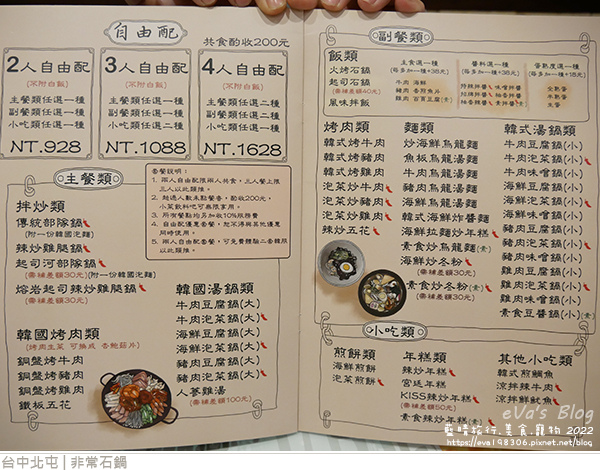 自由配
共食酌收200元
2人自由配
(不附白飯)
主餐類任選一種
副餐類任選一種
小吃類任選一種
NT.928
3人自由配
(不附白飯)
主餐類任選一種
副餐類任選二種
小吃類任選一種
NT.1088
4人自由配
(不附白飯)
主餐類任選二種
副餐類任選二種
小吃類任選二種
NT.1628
主餐類
套餐說明：
1. 兩人自由配限兩人共食，三人餐上限
三人以此類推。
2. 超過人數未點餐者，酌收200元，
小菜飲料吧可無限享用。
3. 所有餐點均另加收10%服務費
4. 自由配優惠套餐，恕不得與其他優惠
同時使用。
5. 兩人自由配套餐，可免費體驗二套韓服
以此類推。
拌炒類
傳統部隊鍋
(附一份韓國泡麵)
辣炒雞腿鍋
起司河部隊鍋
(需補差額30元)(附一份韓國泡麵)
熔岩起司辣炒雞腿鍋
(需補差額30元)
韓國烤肉類
(烤肉生菜 可換成 杏鮑菇片)
銅盤烤牛肉
銅盤烤豬肉
銅盤烤雞肉
鐵板五花
韓國湯鍋類
牛肉豆腐鍋(大)
牛肉泡菜鍋(大)
海鮮豆腐鍋(大)
海鮮泡菜鍋(大)
豬肉豆腐鍋(大)
豬肉泡菜鍋(大)
人蔘雞湯
(需補差額100元)
副餐類
飯類
火烤石鍋
起司石鍋
(需補差額40元)
風味拌飯
主食選一種
(每多加一種+38元)
牛肉 海鮮
豬肉 香煎魚片
雞肉 百頁豆腐(素)
醬料選一種
(每多加一種+18元)
蛋熟度選一種
(每多加一種+18元)
全熟蛋
半熟蛋
生蛋
烤肉類
韓式烤牛肉
韓式烤豬肉
韓式烤雞肉
泡菜炒牛肉
泡菜炒豬肉
泡菜炒雞肉
辣炒五花
麵類
炒海鮮烏龍麵
海鮮烏龍湯麵
魚板烏龍湯麵
泡菜烏龍湯麵
韓式海鮮炸醬麵
海鮮拉麵炒年糕
素食炒烏龍麵(素)
海鮮炒冬粉
(需補差額30元)
素食炒冬粉(素)
(需補差額30元)
韓式湯鍋類
牛肉豆腐鍋(小)
牛肉泡菜鍋(小)
牛肉味噌鍋(小)
海鮮豆腐鍋(小)
海鮮泡菜鍋(小)
海鮮味噌鍋(小)
豬肉豆腐鍋(小)
豬肉泡菜鍋(小)
豬肉味噌鍋(小)
雞肉豆腐鍋(小)
雞肉泡菜鍋(小)
雞肉味噌鍋(小)
素食豆醬鍋(小)
小吃類
煎餅類
海鮮煎餅
泡菜煎餅
年糕類
辣炒年糕
宮廷年糕
KISS辣炒年糕
(需補差額50元)
素食辣炒年糕(素)
其他小吃類
韓式煎鯛魚
涼拌辣牛肉
涼拌鮮魷魚
eva's Blog
藍晴旅行.美食.寵物 2022
https://eva198306.pixnet.net/blog
台中北屯 | 非常石鍋